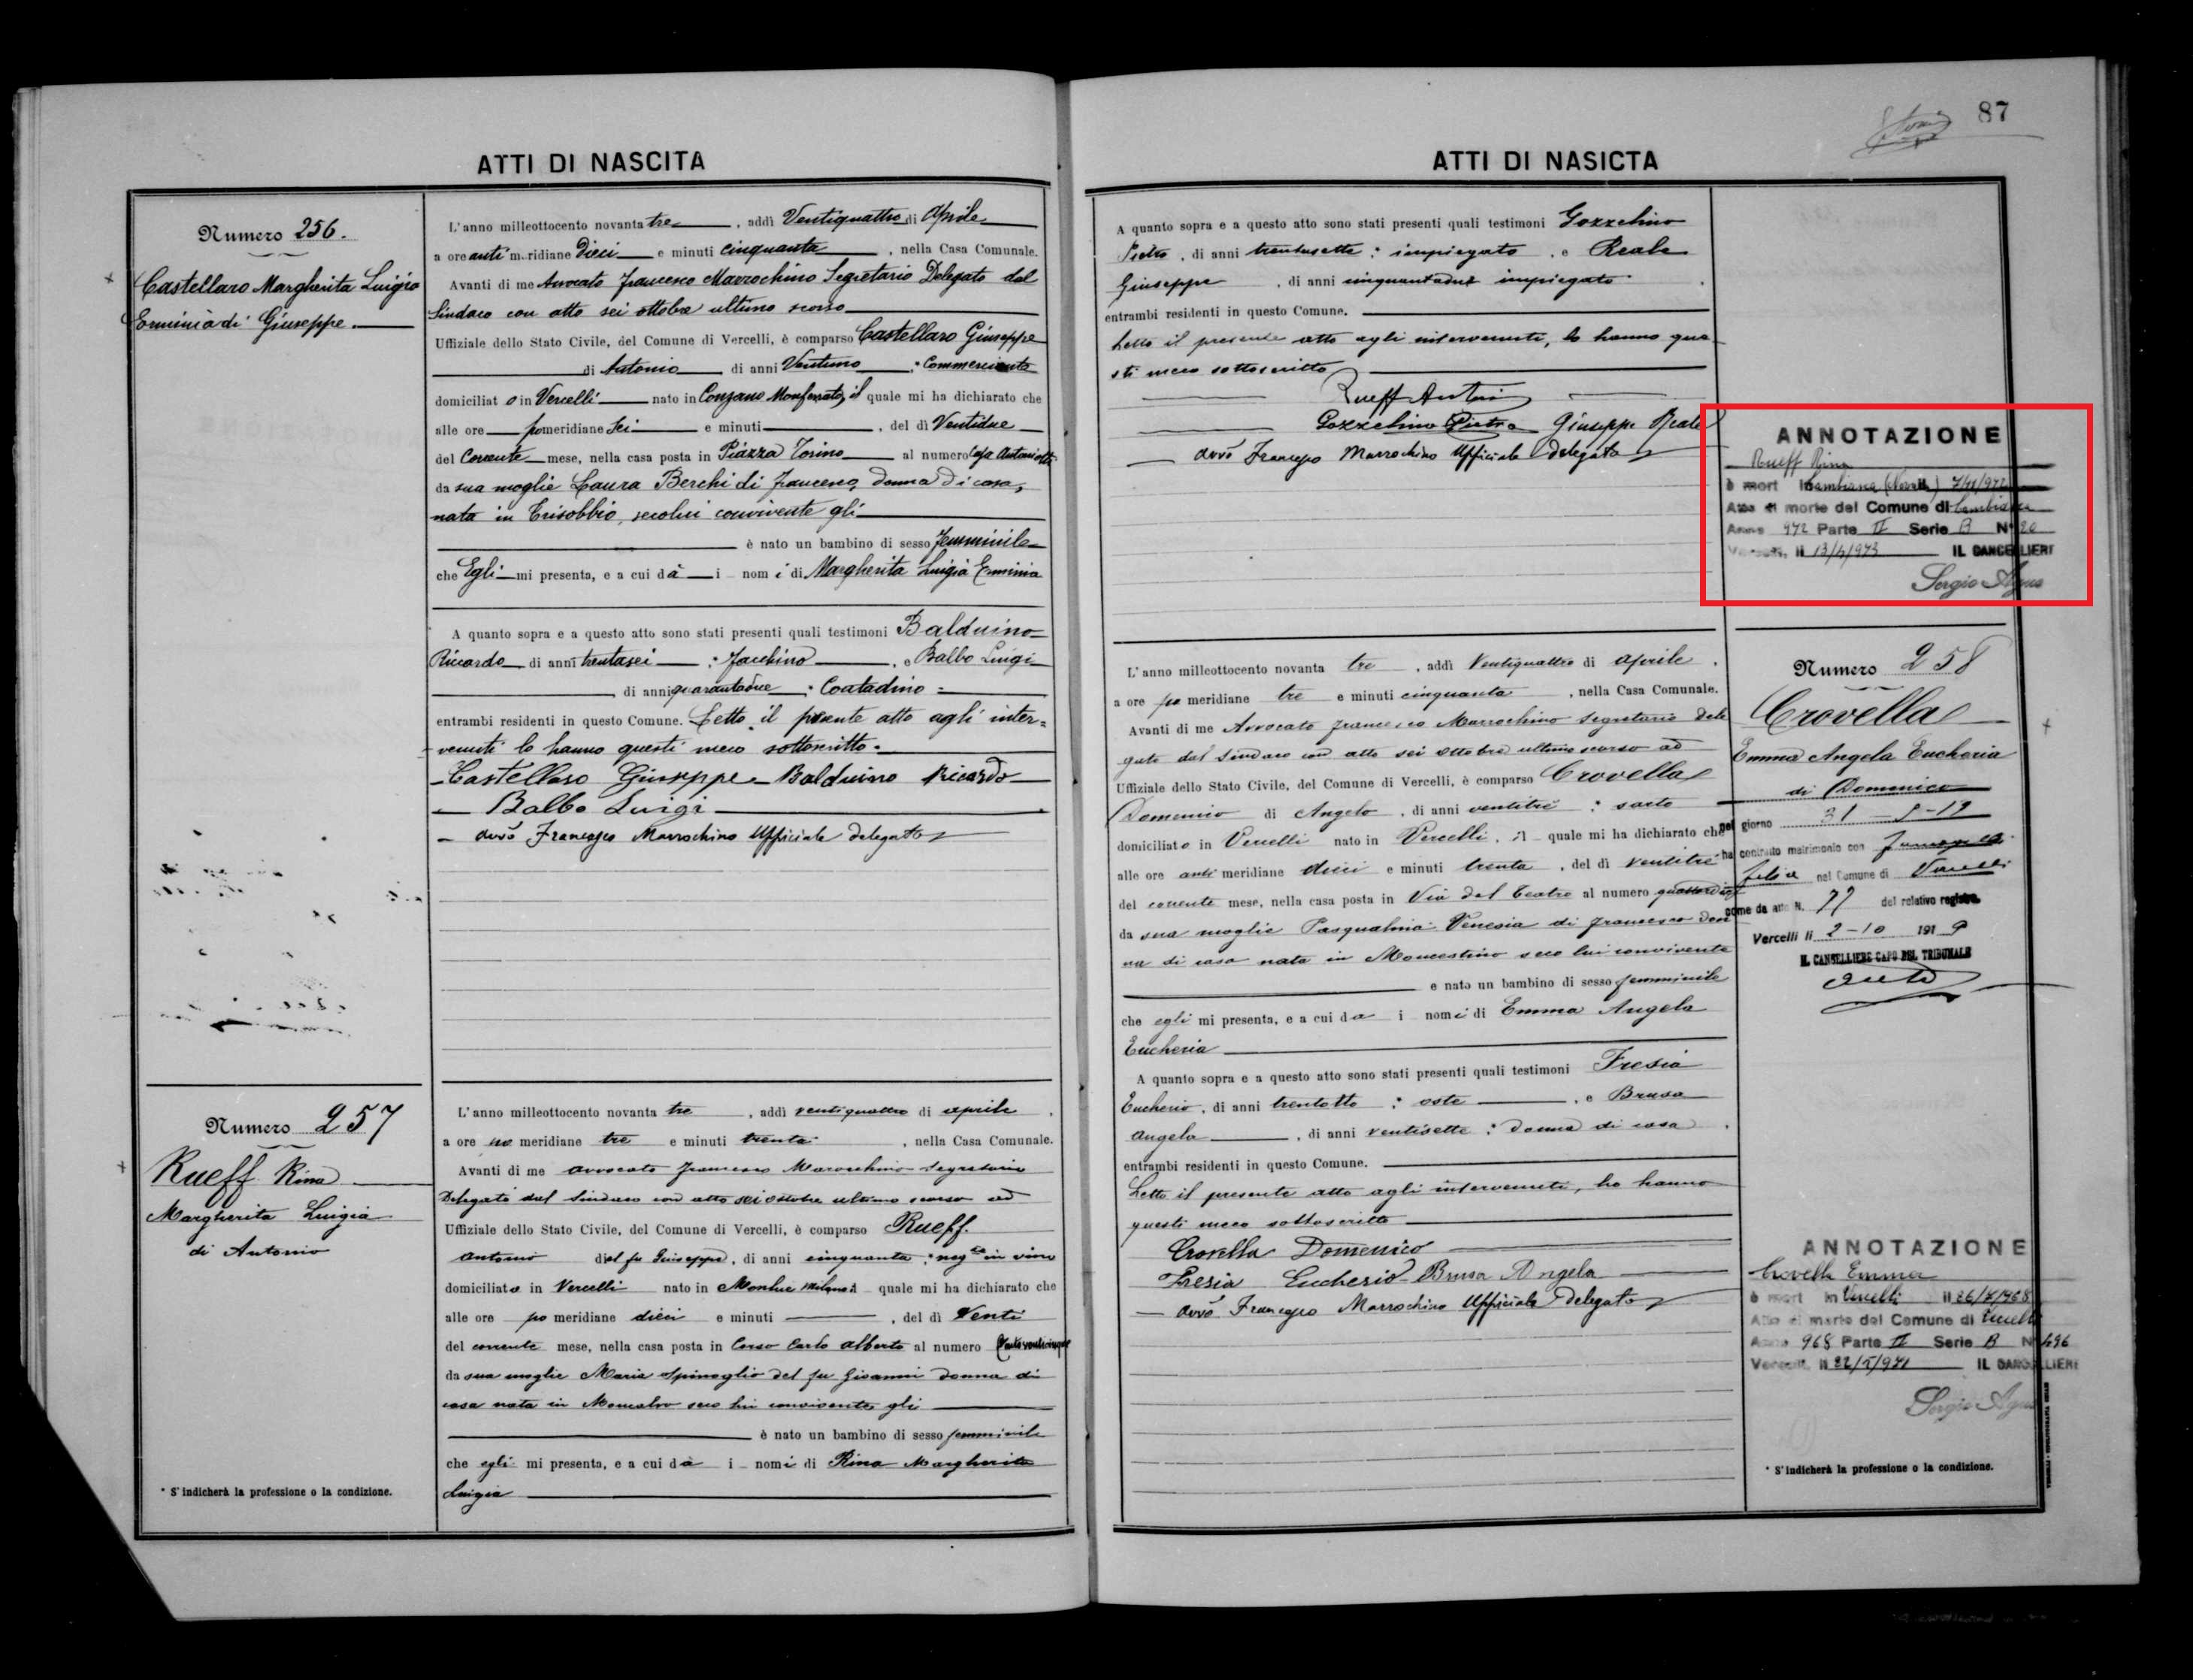 87
ATTI DI NASCITA
Numero 256.
Castellaro Margherita Luigia
Erminia di Giuseppe.
L'anno milleottocento novanta tre, addì Ventiquattro di Aprile
a ore anti meridiane Dieci e minuti cinquanta, nella Casa Comunale.
Avanti di me Avvocato Francesco Marrochino Segretario Delegato dal
Sindaco con atto sei ottobre ultimo scorso
Uffiziale dello Stato Civile, del Comune di Vercelli, è comparso Castellaro Giuseppe
di Antonio, di anni Ventuno; Commerciante
domiciliato in Vercelli nato in Conzano Monferrato, il quale mi ha dichiarato che
alle ore pomeridiane Sei e minuti, del dì Ventidue
del Corrente mese, nella casa posta in Piazza Torino al numero Casa
da sua moglie Laura Berchi di Francesco, donna di casa,
nata in Trisobbio, secolui convivente gli
è nato un bambino di sesso femminile
che Egli mi presenta, e a cui dà i nomi di Margherita Luigia Erminia
A quanto sopra e a questo atto sono stati presenti quali testimoni Balduino
Riccardo di anni trentasei; facchino, e Balbo Luigi
, di anni quarantadue; Contadino
entrambi residenti in questo Comune. Letto il presente atto agli inter=
venuti lo hanno questi meco sottoscritto.
Castellaro Giuseppe Balduino Ricardo
Balbo Luigi
Avvo Francesco Marrochino Uffiziale delegato
Numero 257
Rueff Rina
Margherita Luigia
di Antonio
L'anno milleottocento novanta tre, addì ventiquattro di aprile,
a ore po meridiane tre e minuti trenta, nella Casa Comunale.
Avanti di me avvocato Francesco Marrochino Segretario
Delegato dal Sindaco con atto sei ottobre ultimo scorso ad
Uffiziale dello Stato Civile, del Comune di Vercelli, è comparso Rueff
Antonio del fu Giuseppe, di anni cinquanta; neg.te in vino
domiciliato in Vercelli nato in quale mi ha dichiarato che
alle ore po meridiane dieci e minuti, del dì Venti
del corrente mese, nella casa posta in Corso Carlo Alberto al numero
da sua moglie Maria Spinoglio del fu Giovanni donna di
casa nata in Moncalvo seco lui convivente gli
è nato un bambino di sesso femminile
che egli mi presenta, e a cui dà i nomi di Rina Margherita
Luigia
* S'indicherà la professione o la condizione.
ATTI DI NASICTA
A quanto sopra e a questo atto sono stati presenti quali testimoni Gozzelino
Pietro, di anni trentasette; impiegato, e Reale
Giuseppe, di anni cinquantadue impiegato.
entrambi residenti in questo Comune.
Letto il presente atto agli intervenuti, lo hanno que
sti meco sottoscritto
Rueff Antonio
Gozzelino Pietro Giuseppe Reale
Avvo Francesco Marrochino Uffiziale delegato
ANNOTAZIONE
Rueff Rina
è mort in Cambiasca 7/11/972
Atto di morte del Comune di Cambiasca
Anno 972 Parte II Serie B N° 20
Vercelli, il 13/4/973 IL CANCELLIERE
Sergio Agus
L'anno milleottocento novanta tre, addì Ventiquattro di aprile,
a ore po meridiane tre e minuti cinquanta, nella Casa Comunale.
Avanti di me Avvocato Francesco Marrochino Segretario Dele
gato dal Sindaco con atto sei ottobre ultimo scorso ad
Uffiziale dello Stato Civile, del Comune di Vercelli, è comparso Crovella
Domenico di Angelo, di anni ventitré; sarto
domiciliato in Vercelli nato in Vercelli, il quale mi ha dichiarato che
alle ore anti meridiane dieci e minuti trenta, del dì ventitré
del corrente mese, nella casa posta in Via del Teatro al numero quattordici
da sua moglie Pasqualina Venesia di Francesco don
na di casa nata in Moncestino seco lui convivente
è nato un bambino di sesso femminile
che egli mi presenta, e a cui da i nomi di Emma Angela
Eucheria
A quanto sopra e a questo atto sono stati presenti quali testimoni Fresia
Eucherio, di anni trentotto; oste, e Brusa
Angela, di anni ventisette; donna di casa.
entrambi residenti in questo Comune.
Letto il presente atto agli intervenuti, lo hanno
questi meco sottoscritto
Crovella Domenico
Fresia Eucherio Brusa Angela
Avvo Francesco Marrochino Uffiziale delegato
Numero 258
Crovella
Emma Angela Eucheria
di Domenico
nel giorno 31
ha contratto matrimonio con
nel Comune di Vercelli
come da atto N. 77 del relativo registro.
Vercelli li 2-10 1919
IL CANCELLIERE CAPO DEL TRIBUNALE
ANNOTAZIONE
Crovella Emma
è mort in Vercelli il 26/7/968
Atto di morte del Comune di Vercelli
Anno 968 Parte II Serie B N° 496
Vercelli, il 22/5/971 IL CANCELLIERE
Sergio Agus
* S'indicherà la professione o la condizione.